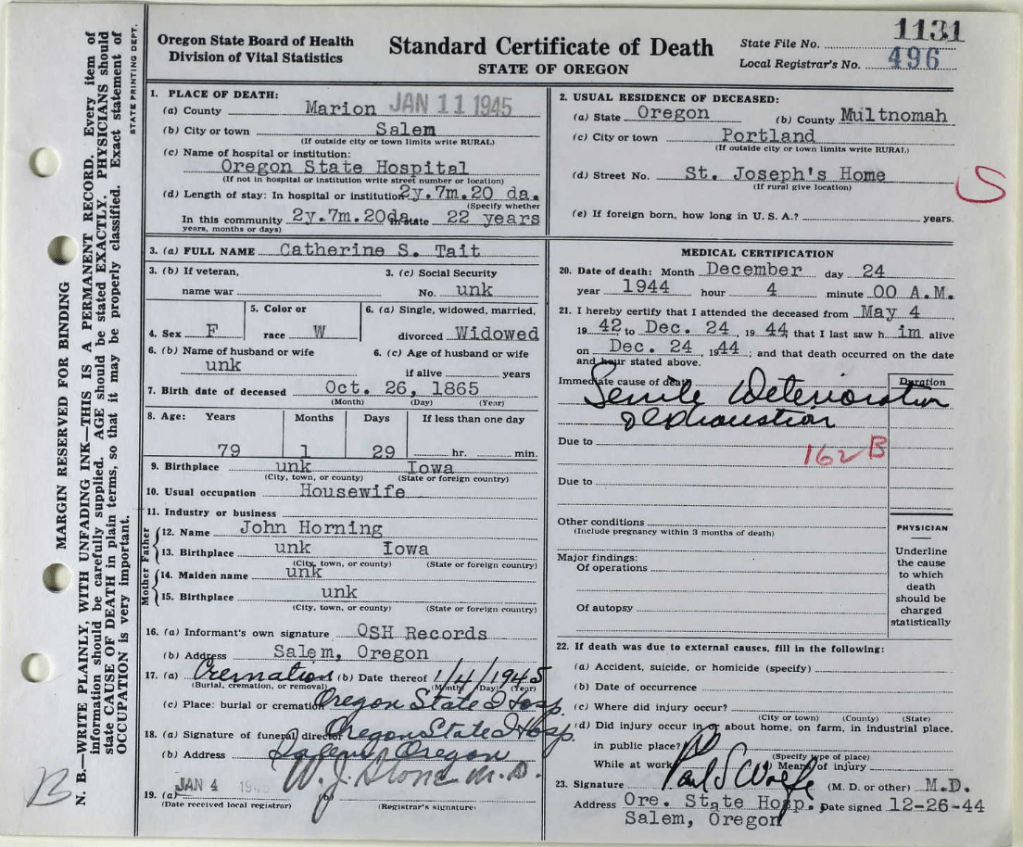 1131
496
Oregon State Board of Health
Division of Vital Statistics
Standard Certificate of Death
STATE OF OREGON
State File No.
Local Registrar's No.
STATE PRINTING DEPT.
MARGIN RESERVED FOR BINDING
N. B.—WRITE PLAINLY, WITH UNFADING INK—THIS IS A PERMANENT RECORD. Every item of
information should be carefully supplied. AGE should be stated EXACTLY. PHYSICIANS should
state CAUSE OF DEATH in plain terms, so that it may be properly classified. Exact statement of
OCCUPATION is very important.
1. PLACE OF DEATH:
(a) County Marion JAN 11 1945
(b) City or town Salem
(If outside city or town limits write RURAL)
(c) Name of hospital or institution:
Oregon State Hospital
(If not in hospital or institution write street number or location)
(d) Length of stay: In hospital or institution 2y.7m.20 da.
(Specify whether
In this community 2y.7m.20da. In state 22 years
years, months or days)
2. USUAL RESIDENCE OF DECEASED:
(a) State Oregon (b) County Multnomah
(c) City or town Portland
(If outside city or town limits write RURAL)
(d) Street No. St. Joseph's Home
(If rural give location)
(e) If foreign born, how long in U. S. A.? years.
S
3. (a) FULL NAME Catherine S. Tait
3. (b) If veteran,
name war
3. (c) Social Security
No. unk
4. Sex F
5. Color or
race W
6. (a) Single, widowed, married,
divorced Widowed
6. (b) Name of husband or wife
unk
6. (c) Age of husband or wife
if alive years
7. Birth date of deceased Oct. 26, 1865
(Month) (Day) (Year)
8. Age: Years Months Days If less than one day
79 1 29 hr. min.
9. Birthplace unk Iowa
(City, town, or county) (State or foreign country)
10. Usual occupation Housewife
11. Industry or business
Father
12. Name John Horning
13. Birthplace unk Iowa
(City, town, or county) (State or foreign country)
Mother
14. Maiden name unk
15. Birthplace unk
(City, town, or county) (State or foreign country)
16. (a) Informant's own signature OSH Records
(b) Address Salem, Oregon
17. (a) Cremation (b) Date thereof 1/4/1945
(Burial, cremation, or removal) (Month) (Day) (Year)
(c) Place: burial or cremation Oregon State Hosp.
18. (a) Signature of funeral director Oregon State Hosp.
(b) Address Salem, Oregon
19. (a) JAN 4 194 (b) W. J. Stone M.D.
(Date received local registrar) (Registrar's signature)
B
MEDICAL CERTIFICATION
20. Date of death: Month December day 24
year 1944 hour 4 minute 00 A.M.
21. I hereby certify that I attended the deceased from May 4
19 42, to Dec. 24, 19 44; that I last saw h im alive
on Dec. 24, 1944; and that death occurred on the date
and hour stated above.
Immediate cause of death Duration
Senile Deterioration
& exhaustion
Due to
162 B
Due to
Other conditions
(Include pregnancy within 3 months of death)
Major findings:
Of operations
Of autopsy
PHYSICIAN
Underline
the cause
to which
death
should be
charged
statistically
22. If death was due to external causes, fill in the following:
(a) Accident, suicide, or homicide (specify)
(b) Date of occurrence
(c) Where did injury occur?
(City or town) (County) (State)
(d) Did injury occur in or about home, on farm, in industrial place,
in public place?
(Specify type of place)
While at work (e) Means of injury
23. Signature Paul S Wolfe (M. D. or other) M.D.
Address Ore. State Hosp. Date signed 12-26-44
Salem, Oregon